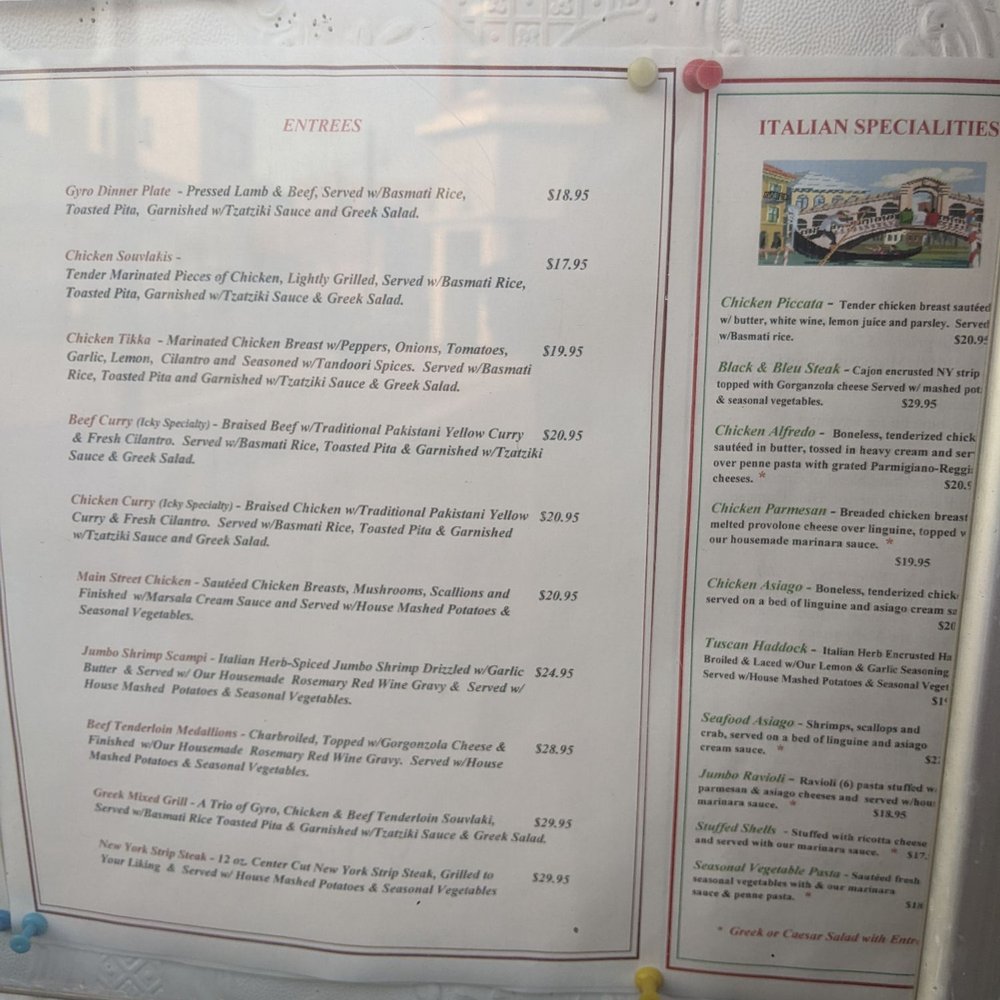 ENTREES
Gyro Dinner Plate - Pressed Lamb & Beef, Served w/Basmati Rice, $18.95
Toasted Pita, Garnished w/Tzatziki Sauce and Greek Salad.
Chicken Souvlakis - $17.95
Tender Marinated Pieces of Chicken, Lightly Grilled, Served w/Basmati Rice,
Toasted Pita, Garnished w/Tzatziki Sauce & Greek Salad.
Chicken Tikka - Marinated Chicken Breast w/Peppers, Onions, Tomatoes, $19.95
Garlic, Lemon, Cilantro and Seasoned w/Tandoori Spices. Served w/Basmati
Rice, Toasted Pita and Garnished w/Tzatziki Sauce & Greek Salad.
Beef Curry (Icky Specialty) - Braised Beef w/Traditional Pakistani Yellow Curry $20.95
& Fresh Cilantro. Served w/Basmati Rice, Toasted Pita & Garnished w/Tzatziki
Sauce & Greek Salad.
Chicken Curry (Icky Specialty) - Braised Chicken w/Traditional Pakistani Yellow $20.95
Curry & Fresh Cilantro. Served w/Basmati Rice, Toasted Pita & Garnished
w/Tzatziki Sauce and Greek Salad.
Main Street Chicken - Sautéed Chicken Breasts, Mushrooms, Scallions and $20.95
Finished w/Marsala Cream Sauce and Served w/House Mashed Potatoes &
Seasonal Vegetables.
Jumbo Shrimp Scampi - Italian Herb-Spiced Jumbo Shrimp Drizzled w/Garlic $24.95
Butter & Served w/ Our Housemade Rosemary Red Wine Gravy & Served w/
House Mashed Potatoes & Seasonal Vegetables.
Beef Tenderloin Medallions - Charbroiled, Topped w/Gorgonzola Cheese & $28.95
Finished w/Our Housemade Rosemary Red Wine Gravy. Served w/House
Mashed Potatoes & Seasonal Vegetables.
Greek Mixed Grill - A Trio of Gyro, Chicken & Beef Tenderloin Souvlaki, $29.95
Served w/Basmati Rice Toasted Pita & Garnished w/Tzatziki Sauce & Greek Salad.
New York Strip Steak - 12 oz. Center Cut New York Strip Steak, Grilled to $29.95
Your Liking & Served w/ House Mashed Potatoes & Seasonal Vegetables
ITALIAN SPECIALITIES
Chicken Piccata - Tender chicken breast sautéed
w/ butter, white wine, lemon juice and parsley. Served
w/Basmati rice. $20.95
Black & Bleu Steak - Cajon encrusted NY strip
topped with Gorganzola cheese Served w/ mashed pot
& seasonal vegetables. $29.95
Chicken Alfredo - Boneless, tenderized chick
sautéed in butter, tossed in heavy cream and ser
over penne pasta with grated Parmigiano-Reggi
cheeses. * $20.9
Chicken Parmesan - Breaded chicken breast
melted provolone cheese over linguine, topped w
our housemade marinara sauce. *
$19.95
Chicken Asiago - Boneless, tenderized chick
served on a bed of linguine and asiago cream sa
$20
Tuscan Haddock - Italian Herb Encrusted Ha
Broiled & Laced w/Our Lemon & Garlic Seasoning
Served w/House Mashed Potatoes & Seasonal Veget
$19
Seafood Asiago - Shrimps, scallops and
crab, served on a bed of linguine and asiago
cream sauce. * $2
Jumbo Ravioli - Ravioli (6) pasta stuffed w
parmesan & asiago cheeses and served w/hous
marinara sauce. * $18.95
Stuffed Shells - Stuffed with ricotta cheese
and served with our marinara sauce. * $17.
Seasonal Vegetable Pasta - Sautéed fresh
seasonal vegetables with & our marinara
sauce & penne pasta. * $18
* Greek or Caesar Salad with Entr